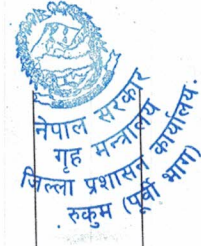 नेपाल सरकार
गृह मन्त्रालय
जिल्ला प्रशासन कार्यालय.
रुकुम (पूर्वी भाग)